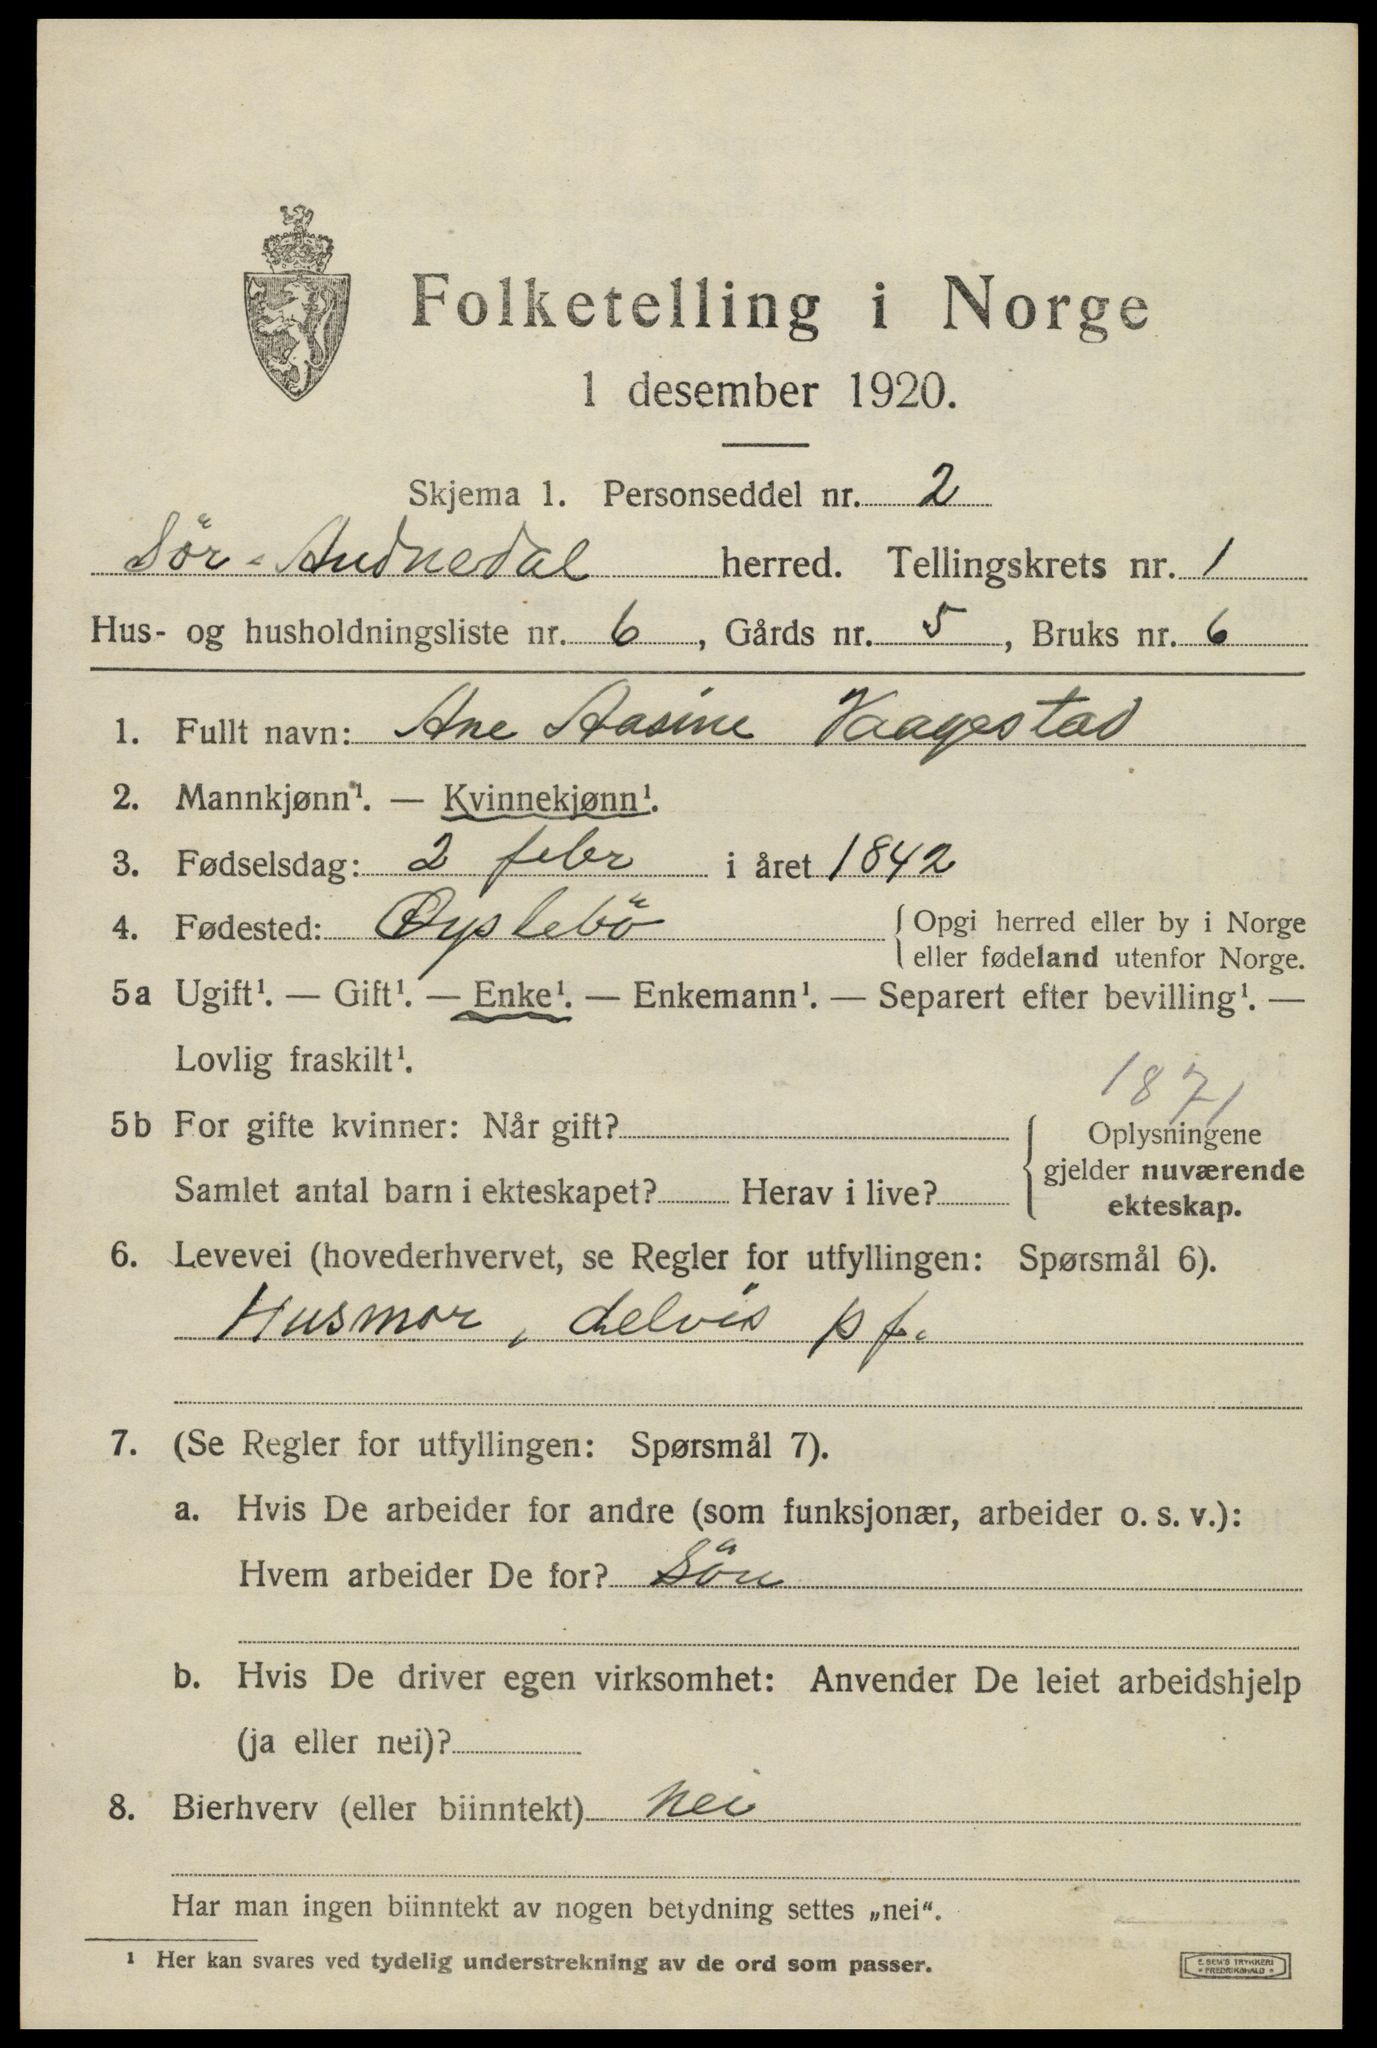 Folketelling i Norge
1 desember 1920.
Skjema 1. Personseddel nr. 2
Sör-Audnedal herred. Tellingskrets nr. 1
Hus- og husholdningsliste nr. 6, Gårds nr. 5, Bruks nr. 6
1. Fullt navn: Ane Aasine Vaagestad
2. Mannkjønn¹. — Kvinnekjønn¹.
3. Fødselsdag: 2 febr i året 1842
4. Fødested: Øyslebö { Opgi herred eller by i Norge
eller fødeland utenfor Norge.
5a Ugift¹. — Gift¹. — Enke¹. — Enkemann¹. — Separert efter bevilling¹. —
Lovlig fraskilt¹.
1871
5b For gifte kvinner: Når gift? { Oplysningene
gjelder nuværende
Samlet antal barn i ekteskapet? Herav i live?
ekteskap.
6. Levevei (hovederhvervet, se Regler for utfyllingen: Spørsmål 6).
Husmor, delvis pf.
7. (Se Regler for utfyllingen: Spørsmål 7).
a. Hvis De arbeider for andre (som funksjonær, arbeider o. s. v.):
Hvem arbeider De for? Sön
b. Hvis De driver egen virksomhet: Anvender De leiet arbeidshjelp
(ja eller nei)?
8. Bierhverv (eller biinntekt) nei
Har man ingen biinntekt av nogen betydning settes „nei“.
¹ Her kan svares ved tydelig understrekning av de ord som passer.
E. SEM'S TRYKKERI
• FREDRIKSHALD •